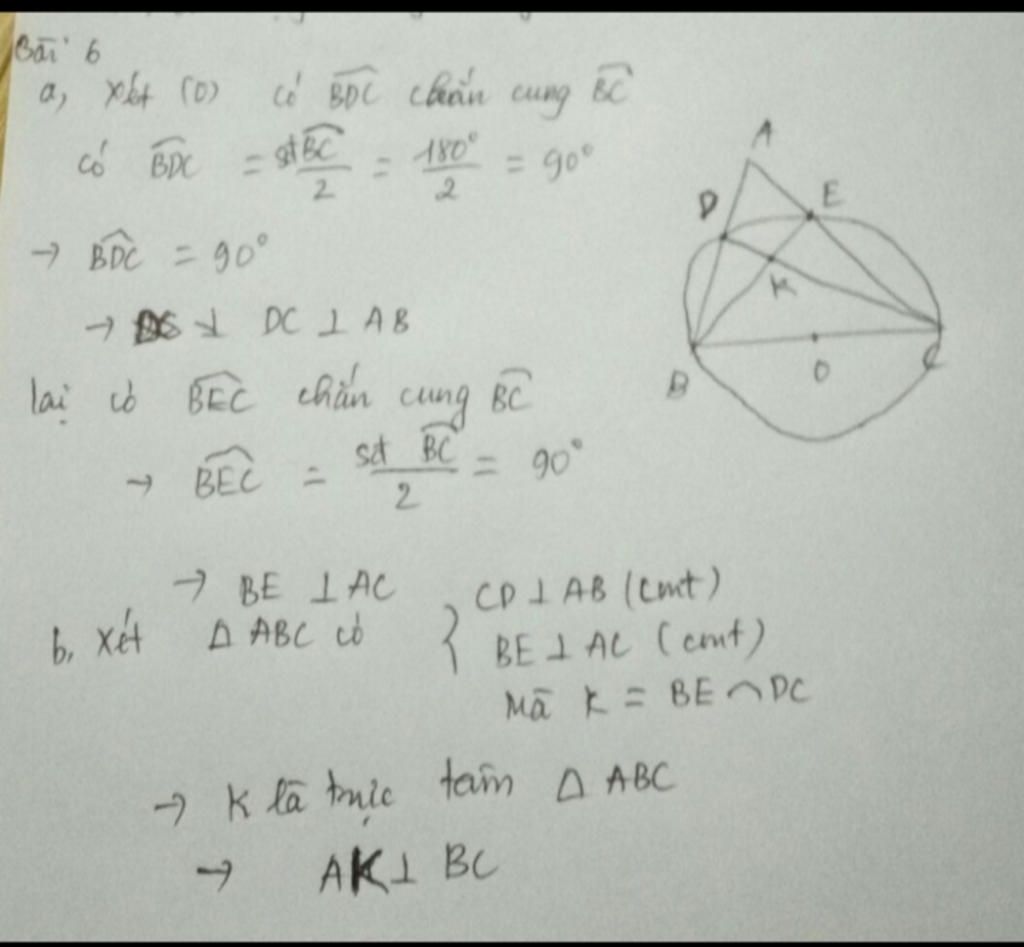 Bài 6
a, xét (O) có BDC chắn cung BC
có BDC = sđBC/2 = 180°/2 = 90°
→ BDC = 90°
→ ⊥ DC ⊥ AB
lại có BEC chắn cung BC
→ BEC = sđ BC/2 = 90°
→ BE ⊥ AC
b, Xét Δ ABC có { CD ⊥ AB (cmt)
BE ⊥ AC (cmt)
Mà K = BE ∩ DC
→ K là trực tâm Δ ABC
→ AK ⊥ BC
A
D
E
K
B
O
C